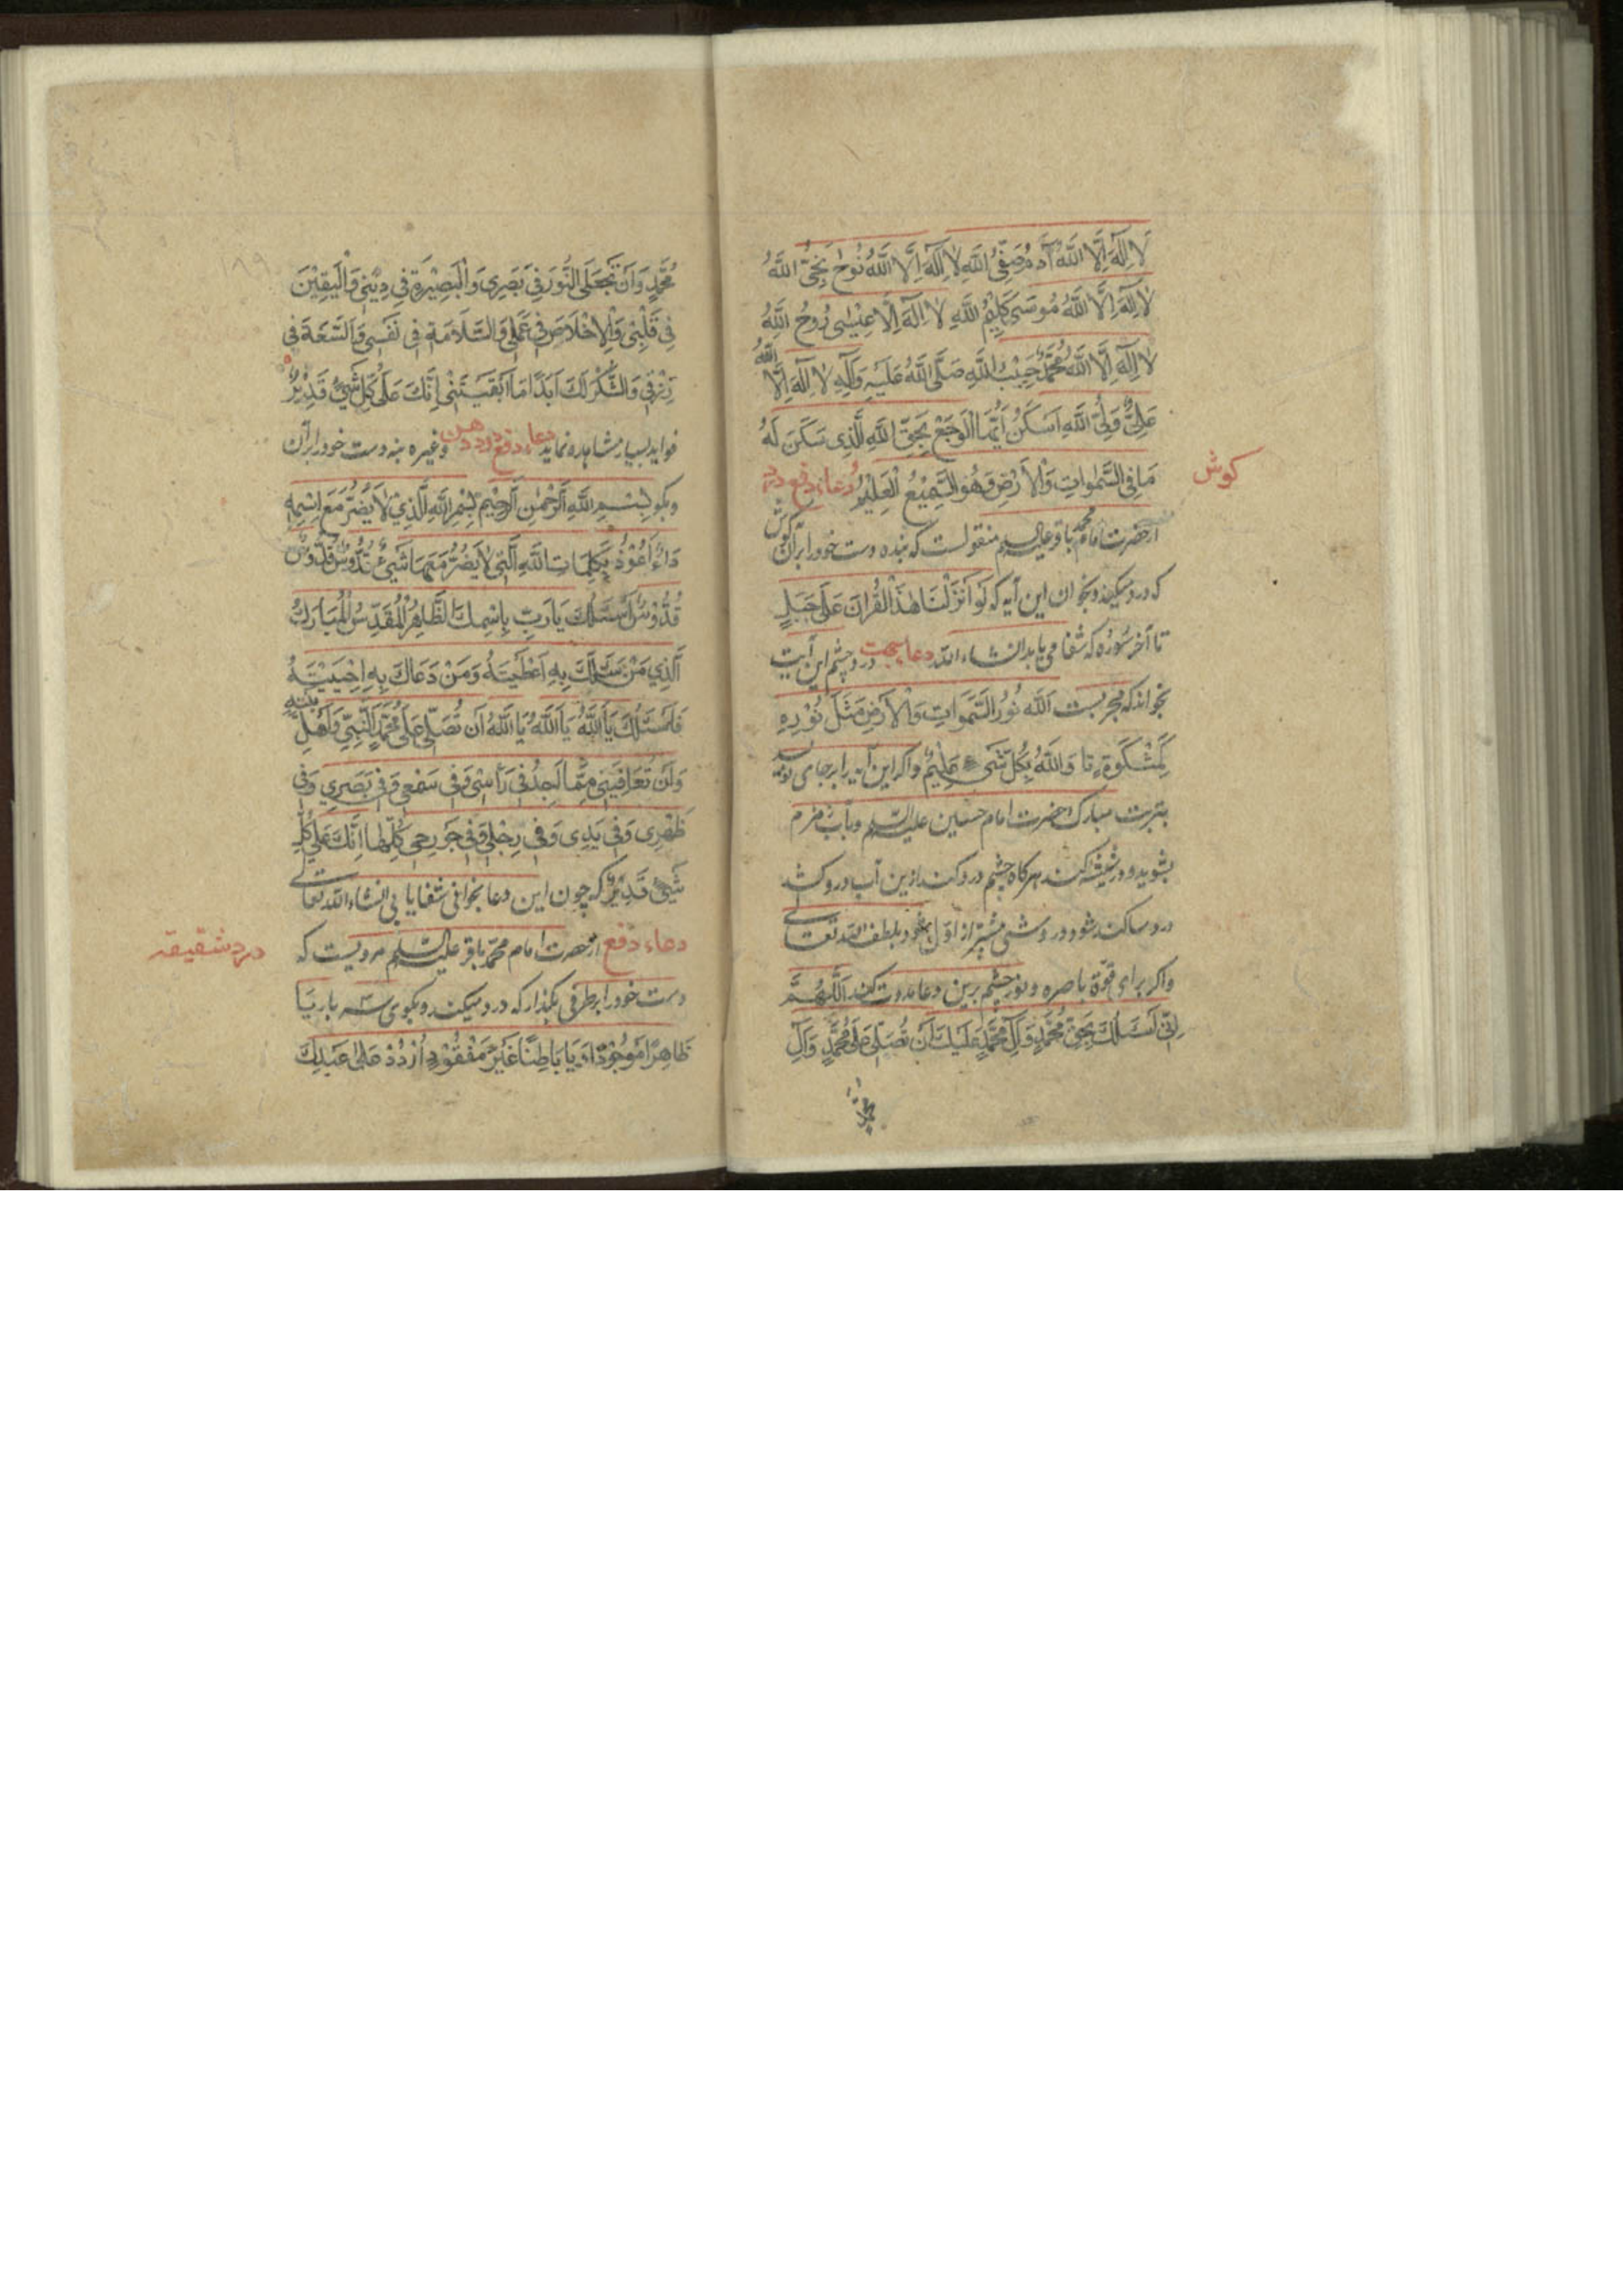 لا اِلٰهَ اِلَّا اللهُ آدَمُ صَفِیُّ اللهِ لا اِلٰهَ اِلَّا اللهُ نُوحٌ نَجِیُّ اللهِ
لا اِلٰهَ اِلَّا اللهُ مُوسٰی کَلِیْمُ اللهِ لا اِلٰهَ اِلَّا عِیْسٰی رُوحُ اللهِ
لا اِلٰهَ اِلَّا اللهُ مُحَمَّدٌ حَبِیْبُ اللهِ صَلَّی اللهُ عَلَیْهِ وَآلِهِ لا اِلٰهَ اِلَّا اللهُ
عَلِیٌّ وَلِیُّ اللهِ اَسْکُنْ اَیُّهَا الْوَجَعُ بِحَقِّ اللهِ الَّذِی سَکَنَ لَهُ
مَا فِی السَّمٰوَاتِ وَالْاَرْضِ وَهُوَ السَّمِیْعُ الْعَلِیْمُ دعاء دفع درد
کوش
از حضرت امام محمد باقر علیه السلم منقولست که بنده دست خود را بر آن کوش
که درد میکند و بخوان این آیه که لَوْ اَنْزَلْنَا هٰذَا الْقُرْاٰنَ عَلٰی جَبَلٍ
تا آخر سُوره که شفا می یابد انشاء الله دعا بجهت درد چشم این آیت
بخواند که مجربست اَللهُ نُورُ السَّمٰوَاتِ وَالْاَرْضِ مَثَلُ نُوْرِهِ
کَمِشْکٰوةٍ تا وَاللهُ بِکُلِّ شَیْءٍ عَلِیْمٌ واکر این آیه را بر جامی نوشته
بتربت مبارک حضرت امام حسین علیه السلم وبآب زمزم
بشوید و در شیشه کند هرکاه چشم درد کند ازین آب در وکشد
درد ساکن شود و روشنی بیشتر از اول شود بلطف الله تعالی
واکر برای قوّة باصره ونور چشم برین دعا مداومت کند اَللّٰهُمَّ
اِنِّی اَسْئَلُكَ بِحَقِّ مُحَمَّدٍ وَآلِ مُحَمَّدٍ عَلَیْكَ اَنْ تُصَلِّیَ عَلٰی مُحَمَّدٍ وَآلِ
مُحَمَّدٍ وَاَنْ تَجْعَلَ النُّوْرَ فِی بَصَرِی وَالْبَصِیْرَةَ فِی دِیْنِی وَالْیَقِیْنَ
فِی قَلْبِی وَالْاِخْلَاصَ فِی عَمَلِی وَالسَّلَامَةَ فِی نَفْسِی وَالسَّعَةَ فِی
رِزْقِی وَالشُّکْرَ لَكَ اَبَدًا مَا اَبْقَیْتَنِی اِنَّكَ عَلٰی کُلِّ شَیْءٍ قَدِیْرٌ
فواید بسیار مشاهده نماید دعاء دفع درد دهن وغیره بنه دست خود را بر آن
وبکو بِسْمِ اللهِ الرَّحْمٰنِ الرَّحِیْمِ بِسْمِ اللهِ الَّذِی لَا یَضُرُّ مَعَ اِسْمِهِ
دَاءٌ اَعُوْذُ بِکَلِمَاتِ اللهِ الَّتِی لَا یَضُرُّ مَعَهَا شَیْءٌ قُدُّوْسٌ قُدُّوْسٌ
قُدُّوْسٌ اَسْئَلُكَ یَا رَبِّ بِاسْمِكَ الطَّاهِرِ الْمُقَدَّسِ الْمُبَارَكِ
الَّذِی مَنْ سَئَلَكَ بِهِ اَعْطَیْتَهُ وَمَنْ دَعَاكَ بِهِ اَجَبْتَهُ
فَاَسْئَلُكَ یَا اَللهُ یَا اَللهُ یَا اَللهُ اَنْ تُصَلِّیَ عَلٰی مُحَمَّدٍ النَّبِیِّ وَاَهْلِ بَیْتِهِ
وَاَنْ تُعَافِیَنِی مِمَّا اَجِدُ فِی رَاْسِی وَفِی سَمْعِی وَفِی بَصَرِی وَفِی
ظَهْرِی وَفِی یَدِی وَفِی رِجْلِی وَفِی جَوَارِحِی کُلِّهَا اِنَّكَ عَلٰی کُلِّ
شَیْءٍ قَدِیْرٌ که چون این دعا بخوانی شفا یابی انشاء الله تعالی
دعاء دفع از حضرت امام محمد باقر علیه السلم مرویست که
درد شقیقه
دست خود را بر طرفی بکذار که درد میکند وبکوی سه بار یَا
ظَاهِرًا مَوْجُوْدًا وَ یَا بَاطِنًا غَیْرَ مَفْقُوْدٍ اُرْدُدْ عَلٰی عَبْدِكَ